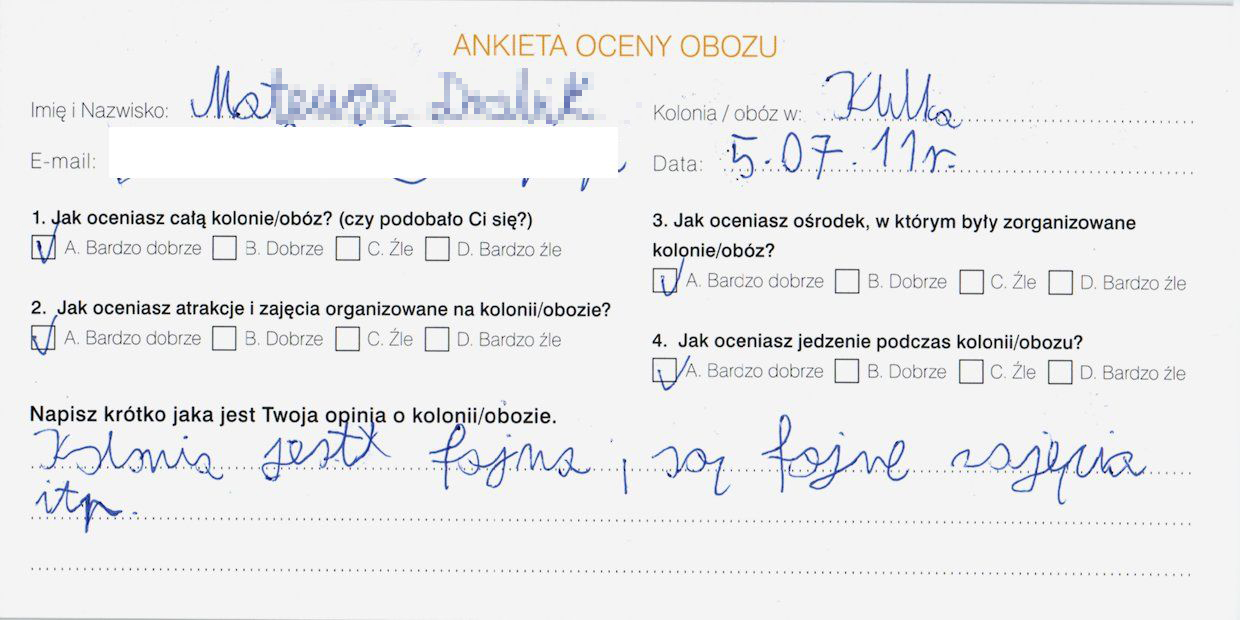 ANKIETA OCENY OBOZU
Imię i Nazwisko:
Kolonia / obóz w:
E-mail:
Data: 5.07.11r.
1. Jak oceniasz całą kolonie/obóz? (czy podobało Ci się?)
A. Bardzo dobrze B. Dobrze C. Źle D. Bardzo źle
2. Jak oceniasz atrakcje i zajęcia organizowane na kolonii/obozie?
A. Bardzo dobrze B. Dobrze C. Źle D. Bardzo źle
3. Jak oceniasz ośrodek, w którym były zorganizowane
kolonie/obóz?
A. Bardzo dobrze B. Dobrze C. Źle D. Bardzo źle
4. Jak oceniasz jedzenie podczas kolonii/obozu?
A. Bardzo dobrze B. Dobrze C. Źle D. Bardzo źle
Napisz krótko jaka jest Twoja opinia o kolonii/obozie.
Kolonia jest fajna, są fajne zajęcia
itp.